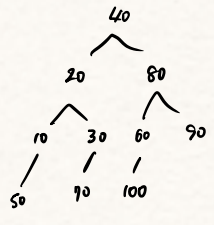 40
20 80
10 30 60 90
50 70 100